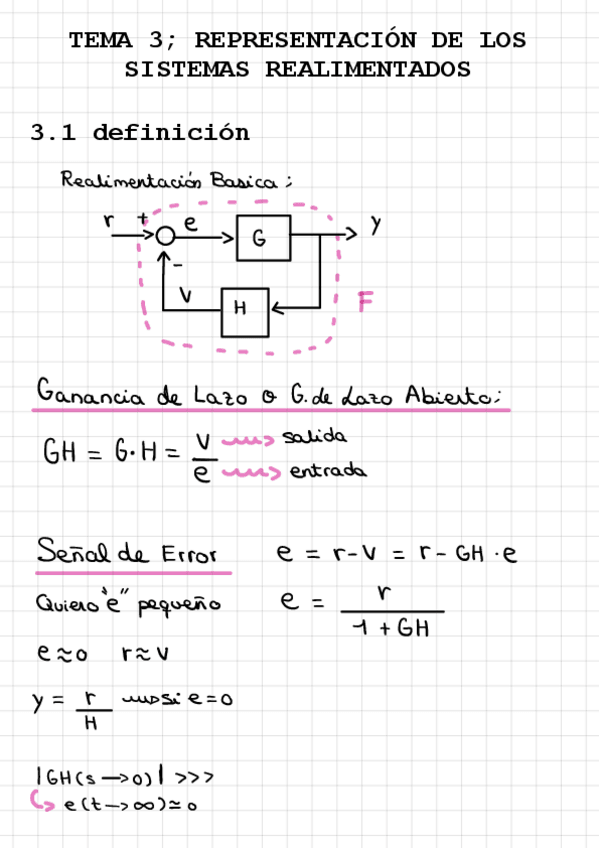 TEMA 3; REPRESENTACIÓN DE LOS
SISTEMAS REALIMENTADOS
3.1 definición
Realimentación Basica:
r + e G y
-
V H F
Ganancia de Lazo o G. de Lazo Abierto:
GH = G·H = V/e
salida
entrada
Señal de Error e = r-V = r - GH·e
Quiero "e" pequeño e = r/(1+GH)
e≈0 r≈V
y = r/H si e=0
|GH(s→0)| >>>
e(t→∞)≃0